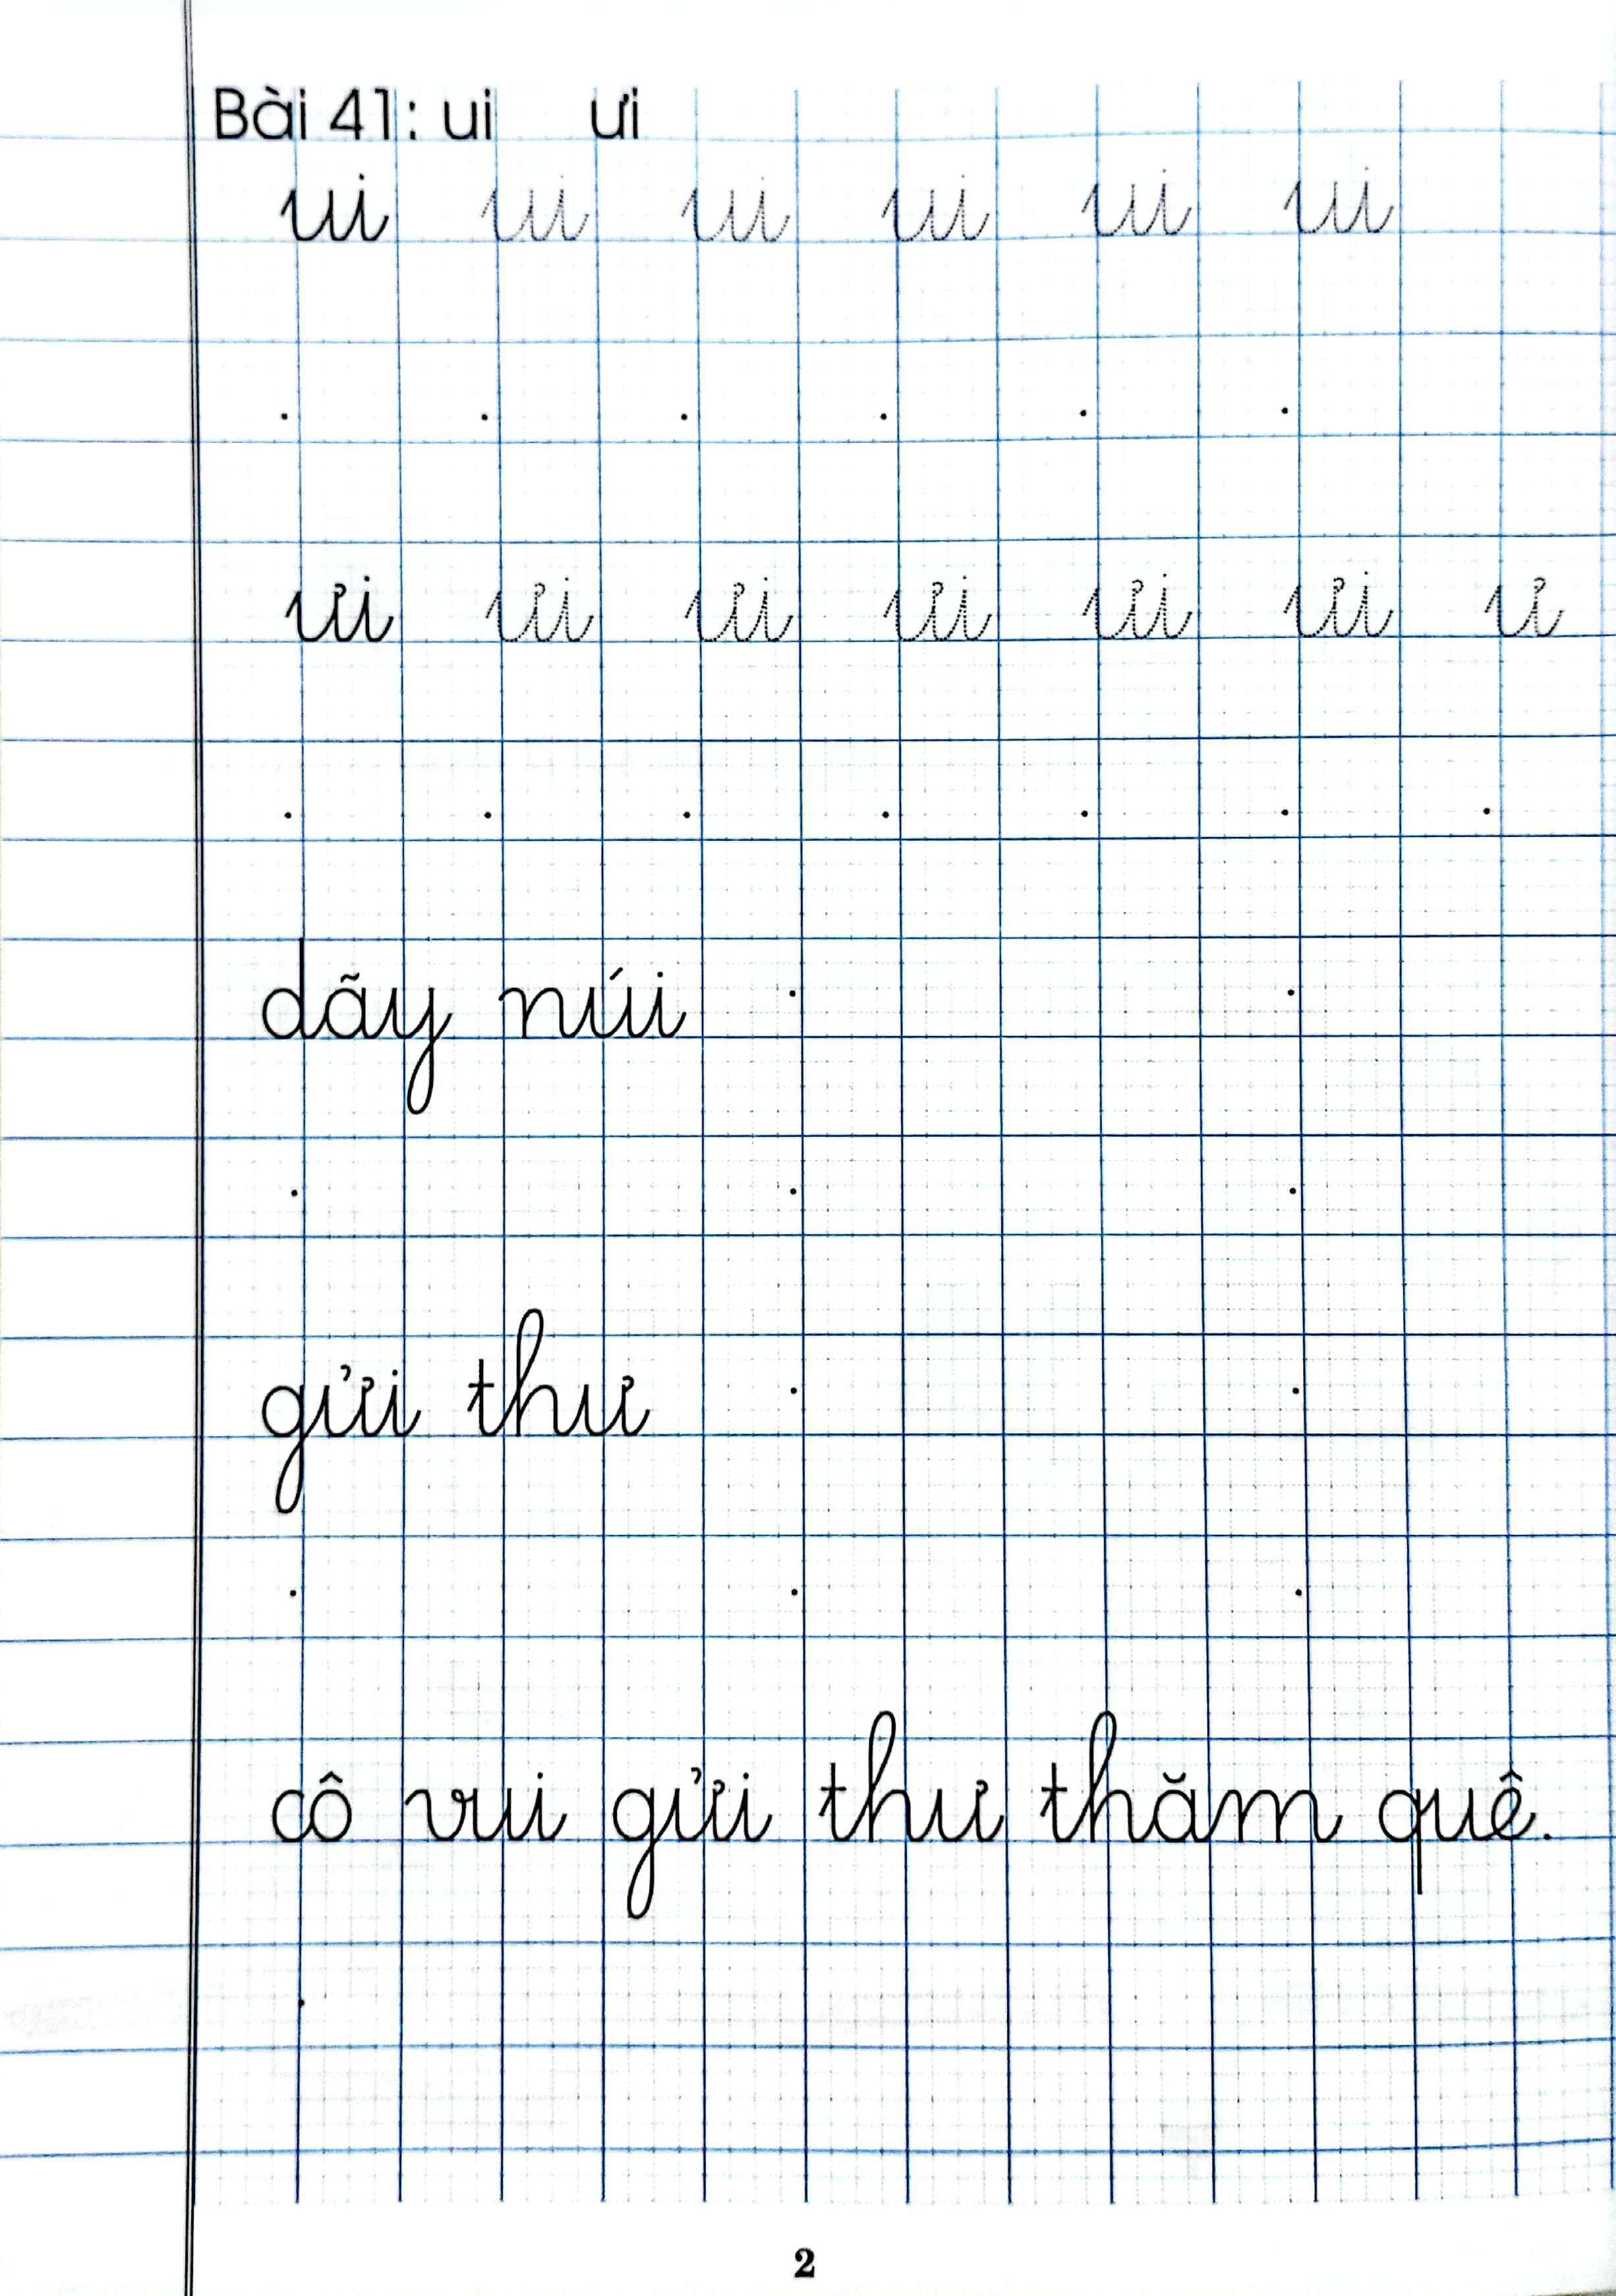 Bài 41: ui ưi
ui ui ui ui ui ui
ưi ưi ưi ưi ưi ưi ư
dãy núi
gửi thư
cô vui gửi thư thăm quê.
2